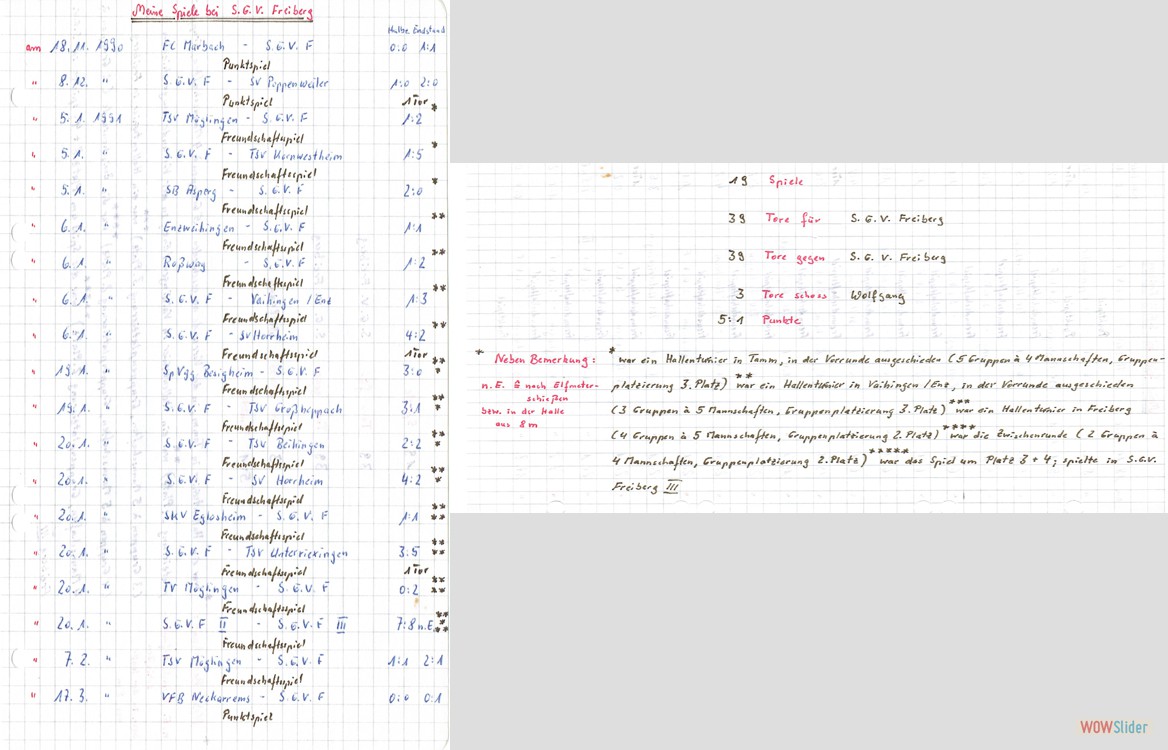 Meine Spiele bei S.G.V. Freiberg
Halbz. Endstand
am 18.11. 1990 FC Marbach - S.G.V. F 0:0 1:1
Punktspiel
" 8.12. " S.G.V. F - SV Poppenweiler 1:0 2:0
Punktspiel 1 Tor
" 5.1. 1991 TSV Möglingen - S.G.V. F 1:2 *
Freundschaftsspiel
" 5.1. " S.G.V. F - TSV Kornwestheim 1:5 *
Freundschaftsspiel
" 5.1. " SB Asperg - S.G.V. F 2:0 *
Freundschaftsspiel
" 6.1. " Enzweihingen - S.G.V. F 1:1 **
Freundschaftsspiel
" 6.1. " Roßwag - S.G.V. F 1:2 **
Freundschaftsspiel
" 6.1. " S.G.V. F - Vaihingen / Enz 1:3 **
Freundschaftsspiel
" 6.1. " S.G.V. F - SV Horrheim 4:2 **
Freundschaftsspiel 1 Tor
" 19.1. " SpVgg Besigheim - S.G.V. F 3:0 ***
Freundschaftsspiel
" 19.1. " S.G.V. F - TSV Großheppach 3:1 ***
Freundschaftsspiel
" 20.1. " S.G.V. F - TSV Beihingen 2:2 ***
Freundschaftsspiel
" 20.1. " S.G.V. F - SV Horrheim 4:2 ***
Freundschaftsspiel
" 20.1. " SKV Eglosheim - S.G.V. F 1:1 ****
Freundschaftsspiel
" 20.1. " S.G.V. F - TSV Unterriexingen 3:5 ****
Freundschaftsspiel 1 Tor
" 20.1. " TV Möglingen - S.G.V. F 0:2 ****
Freundschaftsspiel
" 20.1. " S.G.V. F II - S.G.V. F III 7:8 n.E. *****
Freundschaftsspiel
" 7.2. " TSV Möglingen - S.G.V. F 1:1 2:1
Freundschaftsspiel
" 17.3. " VFB Neckarrems - S.G.V. F 0:0 0:1
Punktspiel
19 Spiele
39 Tore für S.G.V. Freiberg
39 Tore gegen S.G.V. Freiberg
3 Tore schoss Wolfgang
5:1 Punkte
* Neben Bemerkung:
n.E. = nach Elfmeter-
schießen
bzw. in der Halle
aus 8m
* war ein Hallenturnier in Tamm, in der Vorrunde ausgeschieden (5 Gruppen à 4 Mannschaften, Gruppen-
platzierung 3. Platz) ** war ein Hallenturnier in Vaihingen / Enz, in der Vorrunde ausgeschieden
(3 Gruppen à 5 Mannschaften, Gruppenplatzierung 3. Platz) *** war ein Hallenturnier in Freiberg
(4 Gruppen à 5 Mannschaften, Gruppenplatzierung 2. Platz) **** war die Zwischenrunde (2 Gruppen à
4 Mannschaften, Gruppenplatzierung 2. Platz) ***** war das Spiel um Platz 3 + 4; spielte in S.G.V.
Freiberg III
WOWSlider